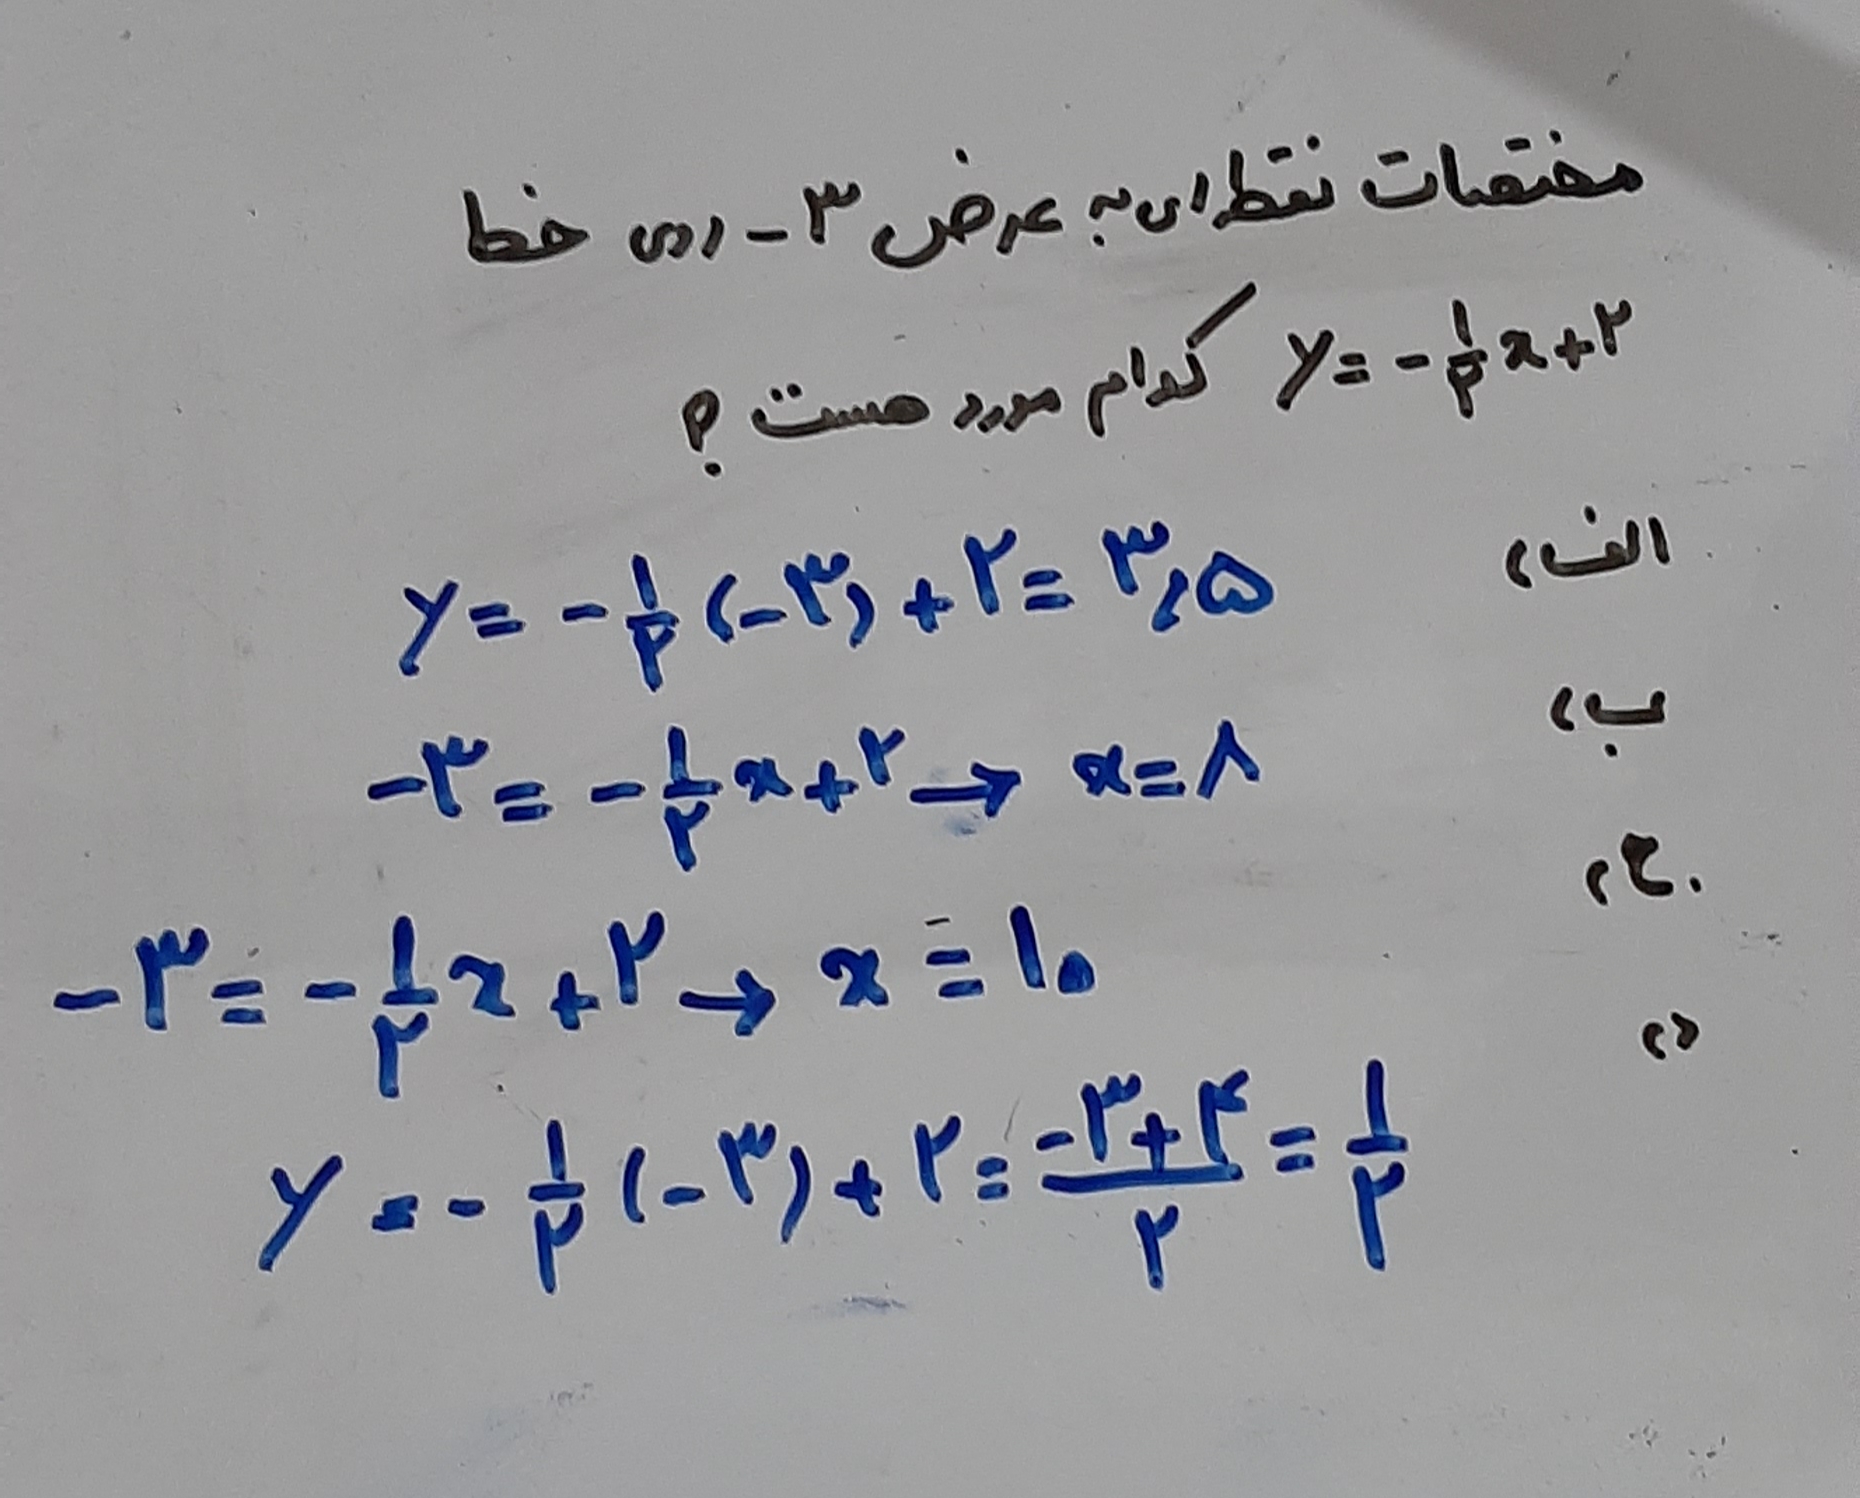 مختصات نقطه ای به عرض ۳- روی خط
y = -۱/۲ x + ۲ کدام مورد هست ؟
الف) y = -۱/۲ (-۳) + ۲ = ۳٫۵
ب) -۳ = -۱/۲ x + ۲ → x = ۸
ج) -۳ = -۱/۲ x + ۲ → x = ۱۰
د) y = -۱/۲ (-۳) + ۲ = (-۳+۴)/۲ = ۱/۲